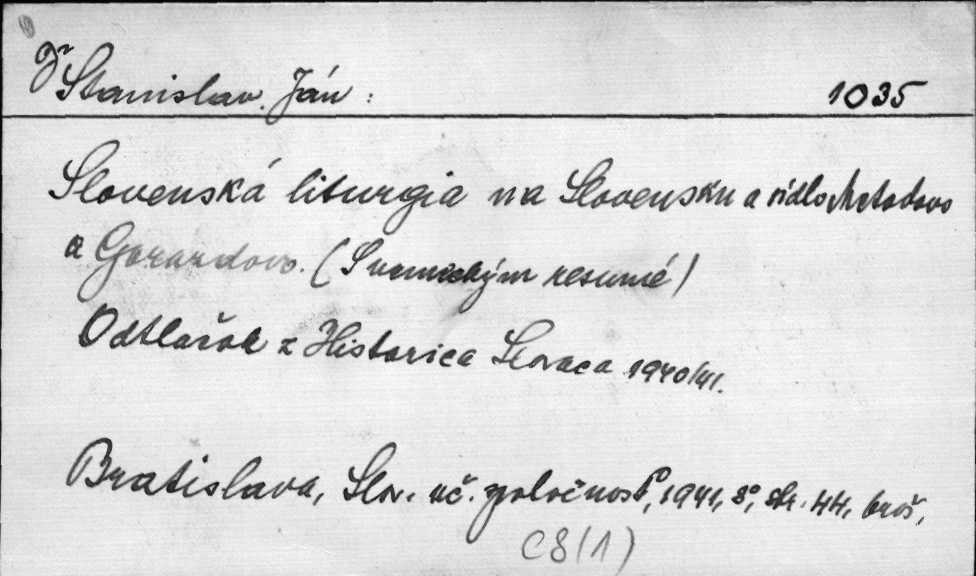 Dr Stanislav Ján: 1035
Slovenská liturgia na Slovensku a sídlo Metodovo
a Gorazdovo. (S nemeckým resumé)
Odtlačok z Historica Slovaca 1940/41.
Bratislava, Slov. uč. spoločnosť, 1941, 8°, str. 44, brož,
C8(1)